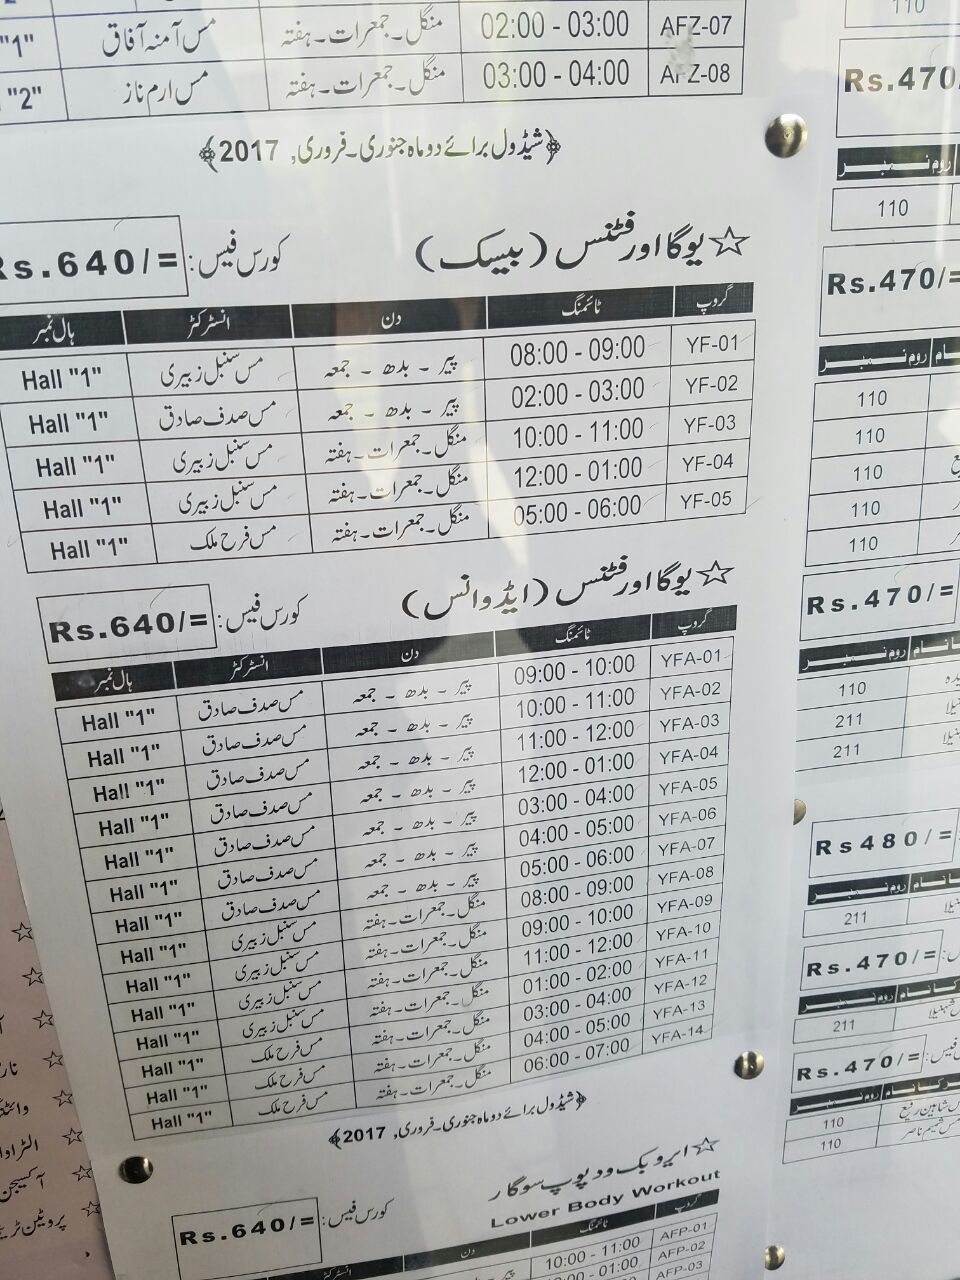 "1" مس آمنہ آفاق منگل۔جمعرات۔ہفتہ 02:00 - 03:00 AFZ-07
"2" مس ارم ناز منگل۔جمعرات۔ہفتہ 03:00 - 04:00 AFZ-08
﴿شیڈول برائے دو ماہ جنوری۔فروری, 2017﴾
☆ یوگا اور فٹنس (بیسک) کورس فیس: Rs.640/=
گروپ ٹائمنگ دن انسٹرکٹر ہال نمبر
YF-01 08:00 - 09:00 پیر - بدھ - جمعہ مس سنبل زبیری Hall "1"
YF-02 02:00 - 03:00 پیر - بدھ - جمعہ مس صدف صادق Hall "1"
YF-03 10:00 - 11:00 منگل۔جمعرات۔ہفتہ مس سنبل زبیری Hall "1"
YF-04 12:00 - 01:00 منگل۔جمعرات۔ہفتہ مس سنبل زبیری Hall "1"
YF-05 05:00 - 06:00 منگل۔جمعرات۔ہفتہ مس فرح ملک Hall "1"
☆ یوگا اور فٹنس (ایڈوانس) کورس فیس: Rs.640/=
گروپ ٹائمنگ دن انسٹرکٹر ہال نمبر
YFA-01 09:00 - 10:00 پیر - بدھ - جمعہ مس صدف صادق Hall "1"
YFA-02 10:00 - 11:00 پیر - بدھ - جمعہ مس صدف صادق Hall "1"
YFA-03 11:00 - 12:00 پیر - بدھ - جمعہ مس صدف صادق Hall "1"
YFA-04 12:00 - 01:00 پیر - بدھ - جمعہ مس صدف صادق Hall "1"
YFA-05 03:00 - 04:00 پیر - بدھ - جمعہ مس صدف صادق Hall "1"
YFA-06 04:00 - 05:00 پیر - بدھ - جمعہ مس صدف صادق Hall "1"
YFA-07 05:00 - 06:00 پیر - بدھ - جمعہ مس صدف صادق Hall "1"
YFA-08 08:00 - 09:00 منگل۔جمعرات۔ہفتہ مس سنبل زبیری Hall "1"
YFA-09 09:00 - 10:00 منگل۔جمعرات۔ہفتہ مس سنبل زبیری Hall "1"
YFA-10 11:00 - 12:00 منگل۔جمعرات۔ہفتہ مس سنبل زبیری Hall "1"
YFA-11 01:00 - 02:00 منگل۔جمعرات۔ہفتہ مس سنبل زبیری Hall "1"
YFA-12 03:00 - 04:00 منگل۔جمعرات۔ہفتہ مس فرح ملک Hall "1"
YFA-13 04:00 - 05:00 منگل۔جمعرات۔ہفتہ مس فرح ملک Hall "1"
YFA-14 06:00 - 07:00 منگل۔جمعرات۔ہفتہ مس فرح ملک Hall "1"
﴿شیڈول برائے دو ماہ جنوری۔فروری, 2017﴾
☆ ایروبک ود پوپ سوگار
Lower Body Workout
کورس فیس: Rs.640/=
گروپ ٹائمنگ دن انسٹرکٹر
AFP-01 10:00 - 11:00 پیر
AFP-02 01:00
AFP-03
110
Rs.470/
روم نمبر
110
Rs.470/=
روم نمبر
110
110
110
110
110
Rs.470/=
روم نمبر
110
211
211
Rs480/=
روم نمبر
211
Rs.470/=
روم نمبر
211
فیس: Rs.470/=
روم نمبر
110 شاہین رفیع
110 مس شمیم ناصر
آکسیجن
پروٹین